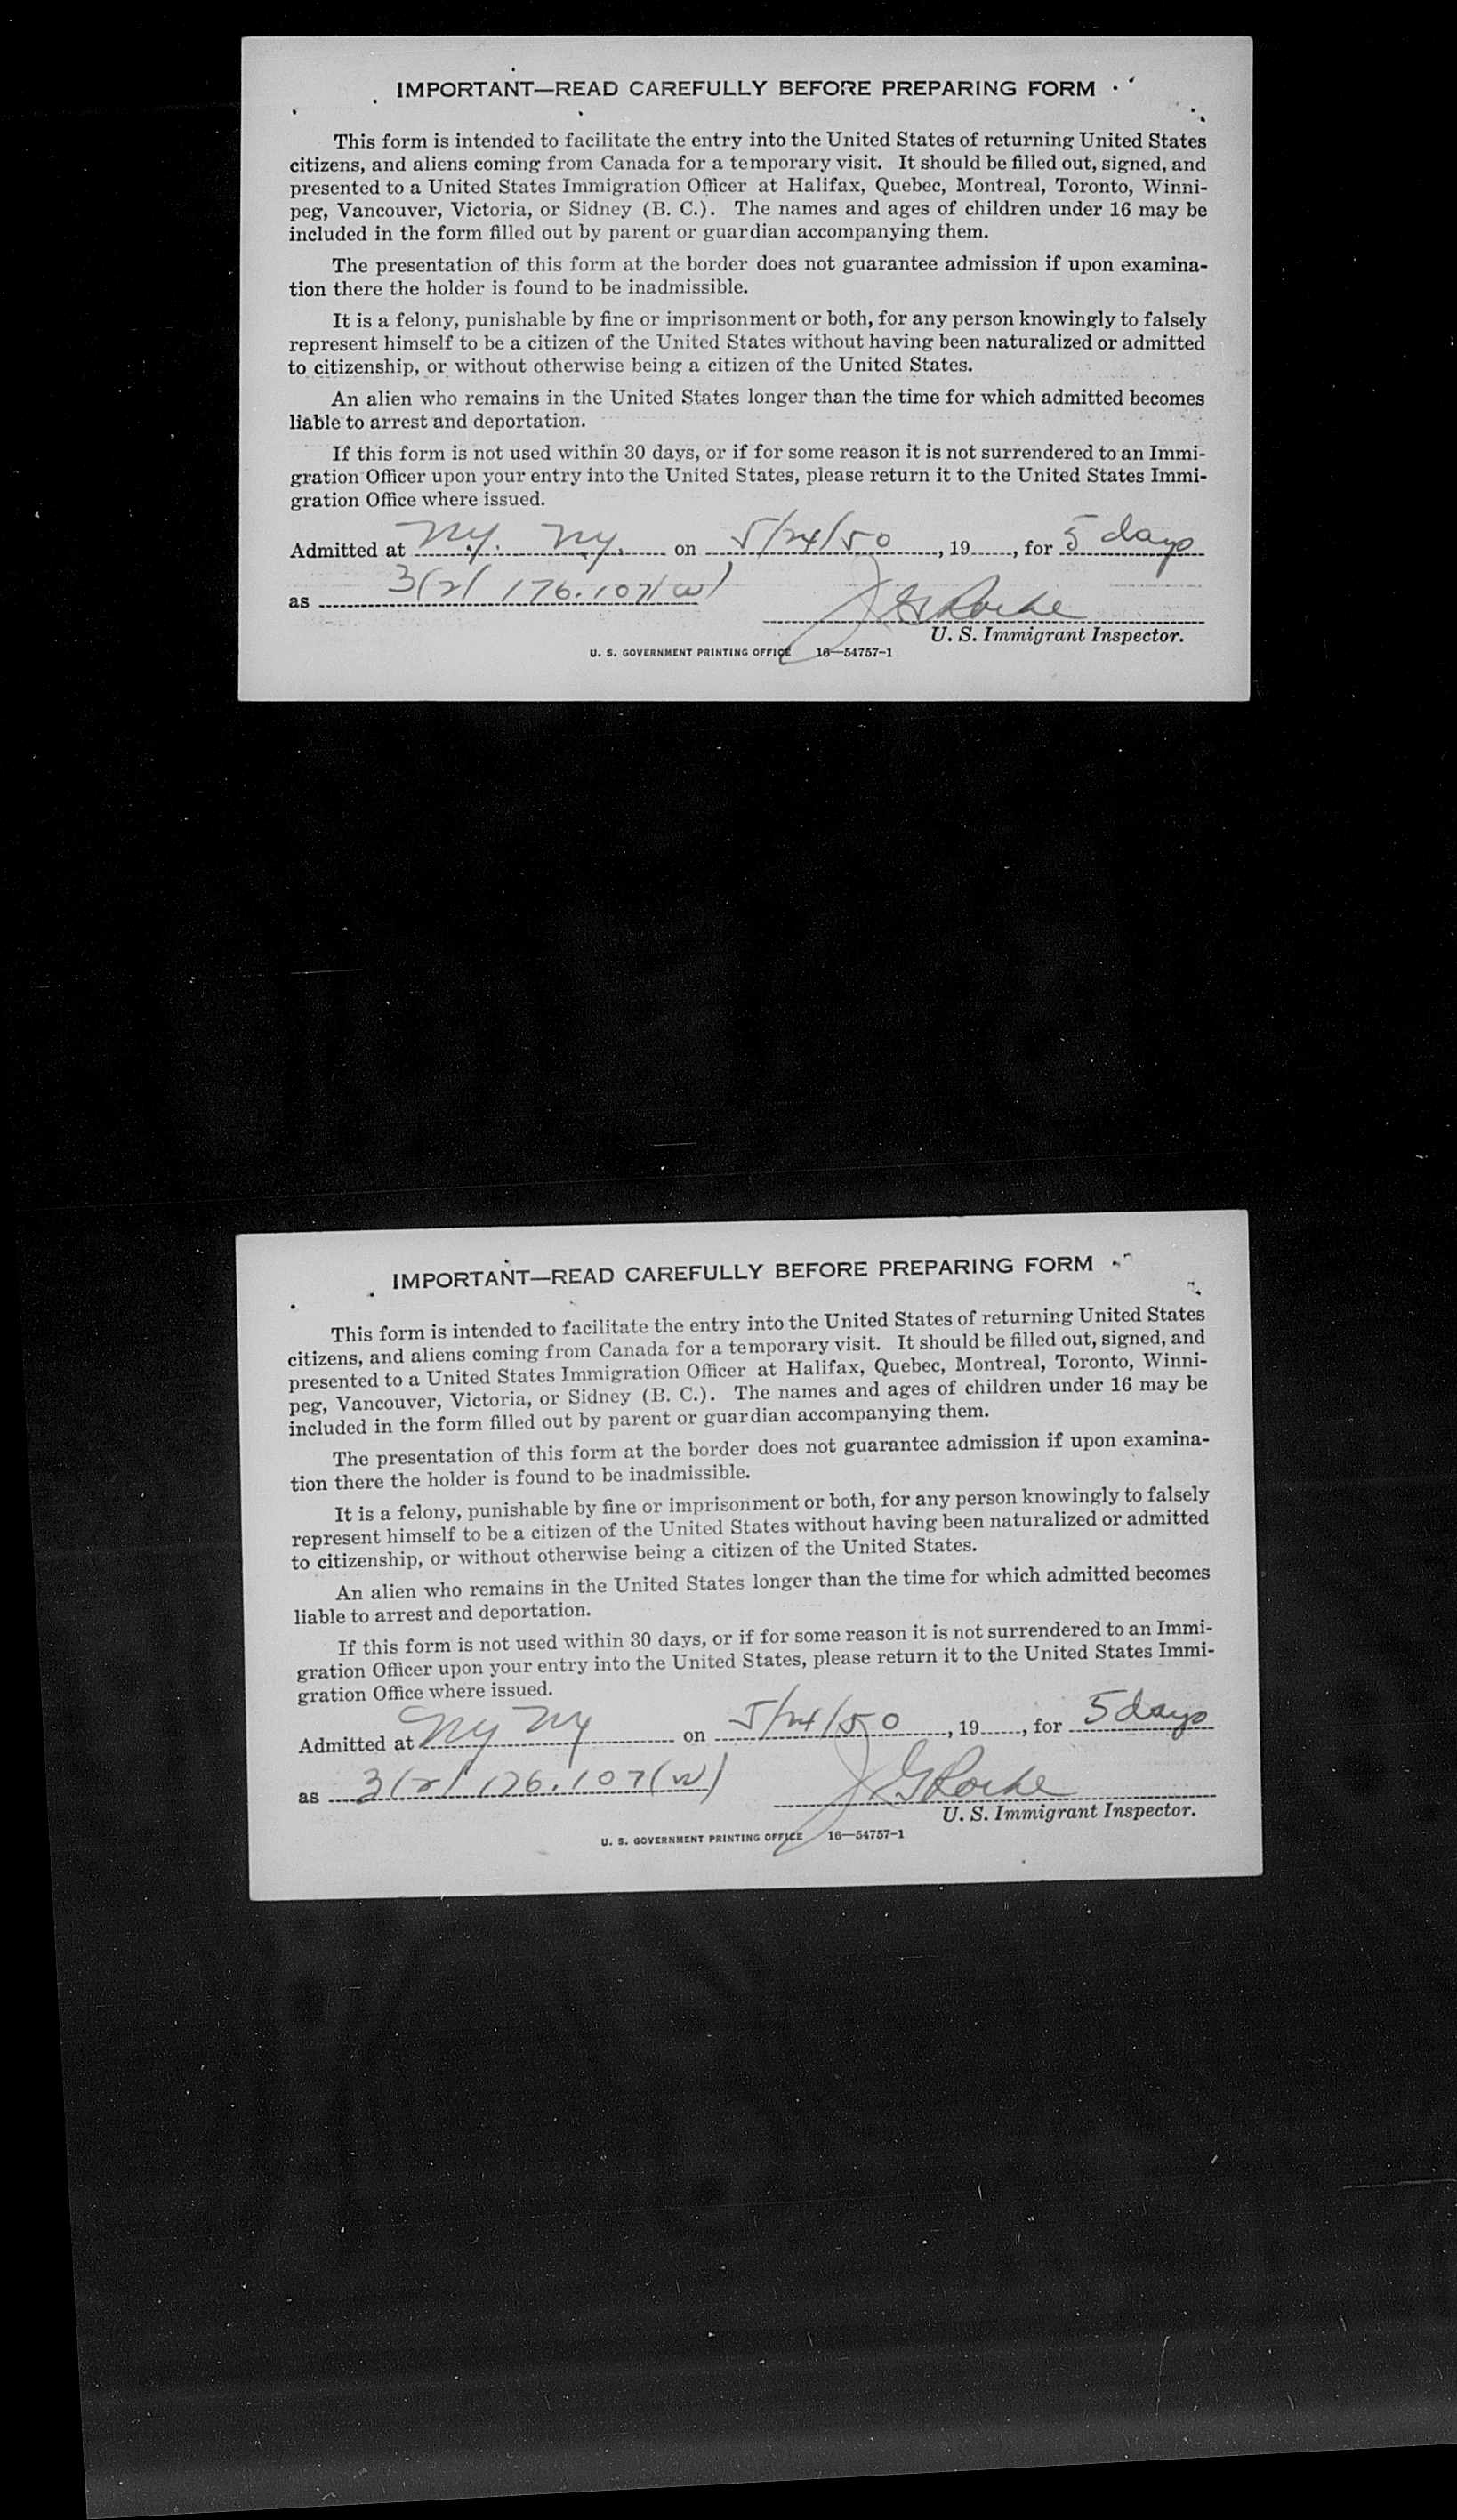 IMPORTANT—READ CAREFULLY BEFORE PREPARING FORM
This form is intended to facilitate the entry into the United States of returning United States
citizens, and aliens coming from Canada for a temporary visit. It should be filled out, signed, and
presented to a United States Immigration Officer at Halifax, Quebec, Montreal, Toronto, Winni-
peg, Vancouver, Victoria, or Sidney (B. C.). The names and ages of children under 16 may be
included in the form filled out by parent or guardian accompanying them.
The presentation of this form at the border does not guarantee admission if upon examina-
tion there the holder is found to be inadmissible.
It is a felony, punishable by fine or imprisonment or both, for any person knowingly to falsely
represent himself to be a citizen of the United States without having been naturalized or admitted
to citizenship, or without otherwise being a citizen of the United States.
An alien who remains in the United States longer than the time for which admitted becomes
liable to arrest and deportation.
If this form is not used within 30 days, or if for some reason it is not surrendered to an Immi-
gration Officer upon your entry into the United States, please return it to the United States Immi-
gration Office where issued.
Admitted at Ny. Ny. on 5/24/50, 19......, for 5 days
as 3(2) 176.107(w)
J G Roche
U. S. Immigrant Inspector.
U. S. GOVERNMENT PRINTING OFFICE 16—54757-1
IMPORTANT—READ CAREFULLY BEFORE PREPARING FORM
This form is intended to facilitate the entry into the United States of returning United States
citizens, and aliens coming from Canada for a temporary visit. It should be filled out, signed, and
presented to a United States Immigration Officer at Halifax, Quebec, Montreal, Toronto, Winni-
peg, Vancouver, Victoria, or Sidney (B. C.). The names and ages of children under 16 may be
included in the form filled out by parent or guardian accompanying them.
The presentation of this form at the border does not guarantee admission if upon examina-
tion there the holder is found to be inadmissible.
It is a felony, punishable by fine or imprisonment or both, for any person knowingly to falsely
represent himself to be a citizen of the United States without having been naturalized or admitted
to citizenship, or without otherwise being a citizen of the United States.
An alien who remains in the United States longer than the time for which admitted becomes
liable to arrest and deportation.
If this form is not used within 30 days, or if for some reason it is not surrendered to an Immi-
gration Officer upon your entry into the United States, please return it to the United States Immi-
gration Office where issued.
Admitted at Ny Ny on 5/24/50, 19......, for 5 days
as 3(2) 176.107(w)
J G Roche
U. S. Immigrant Inspector.
U. S. GOVERNMENT PRINTING OFFICE 16—54757-1